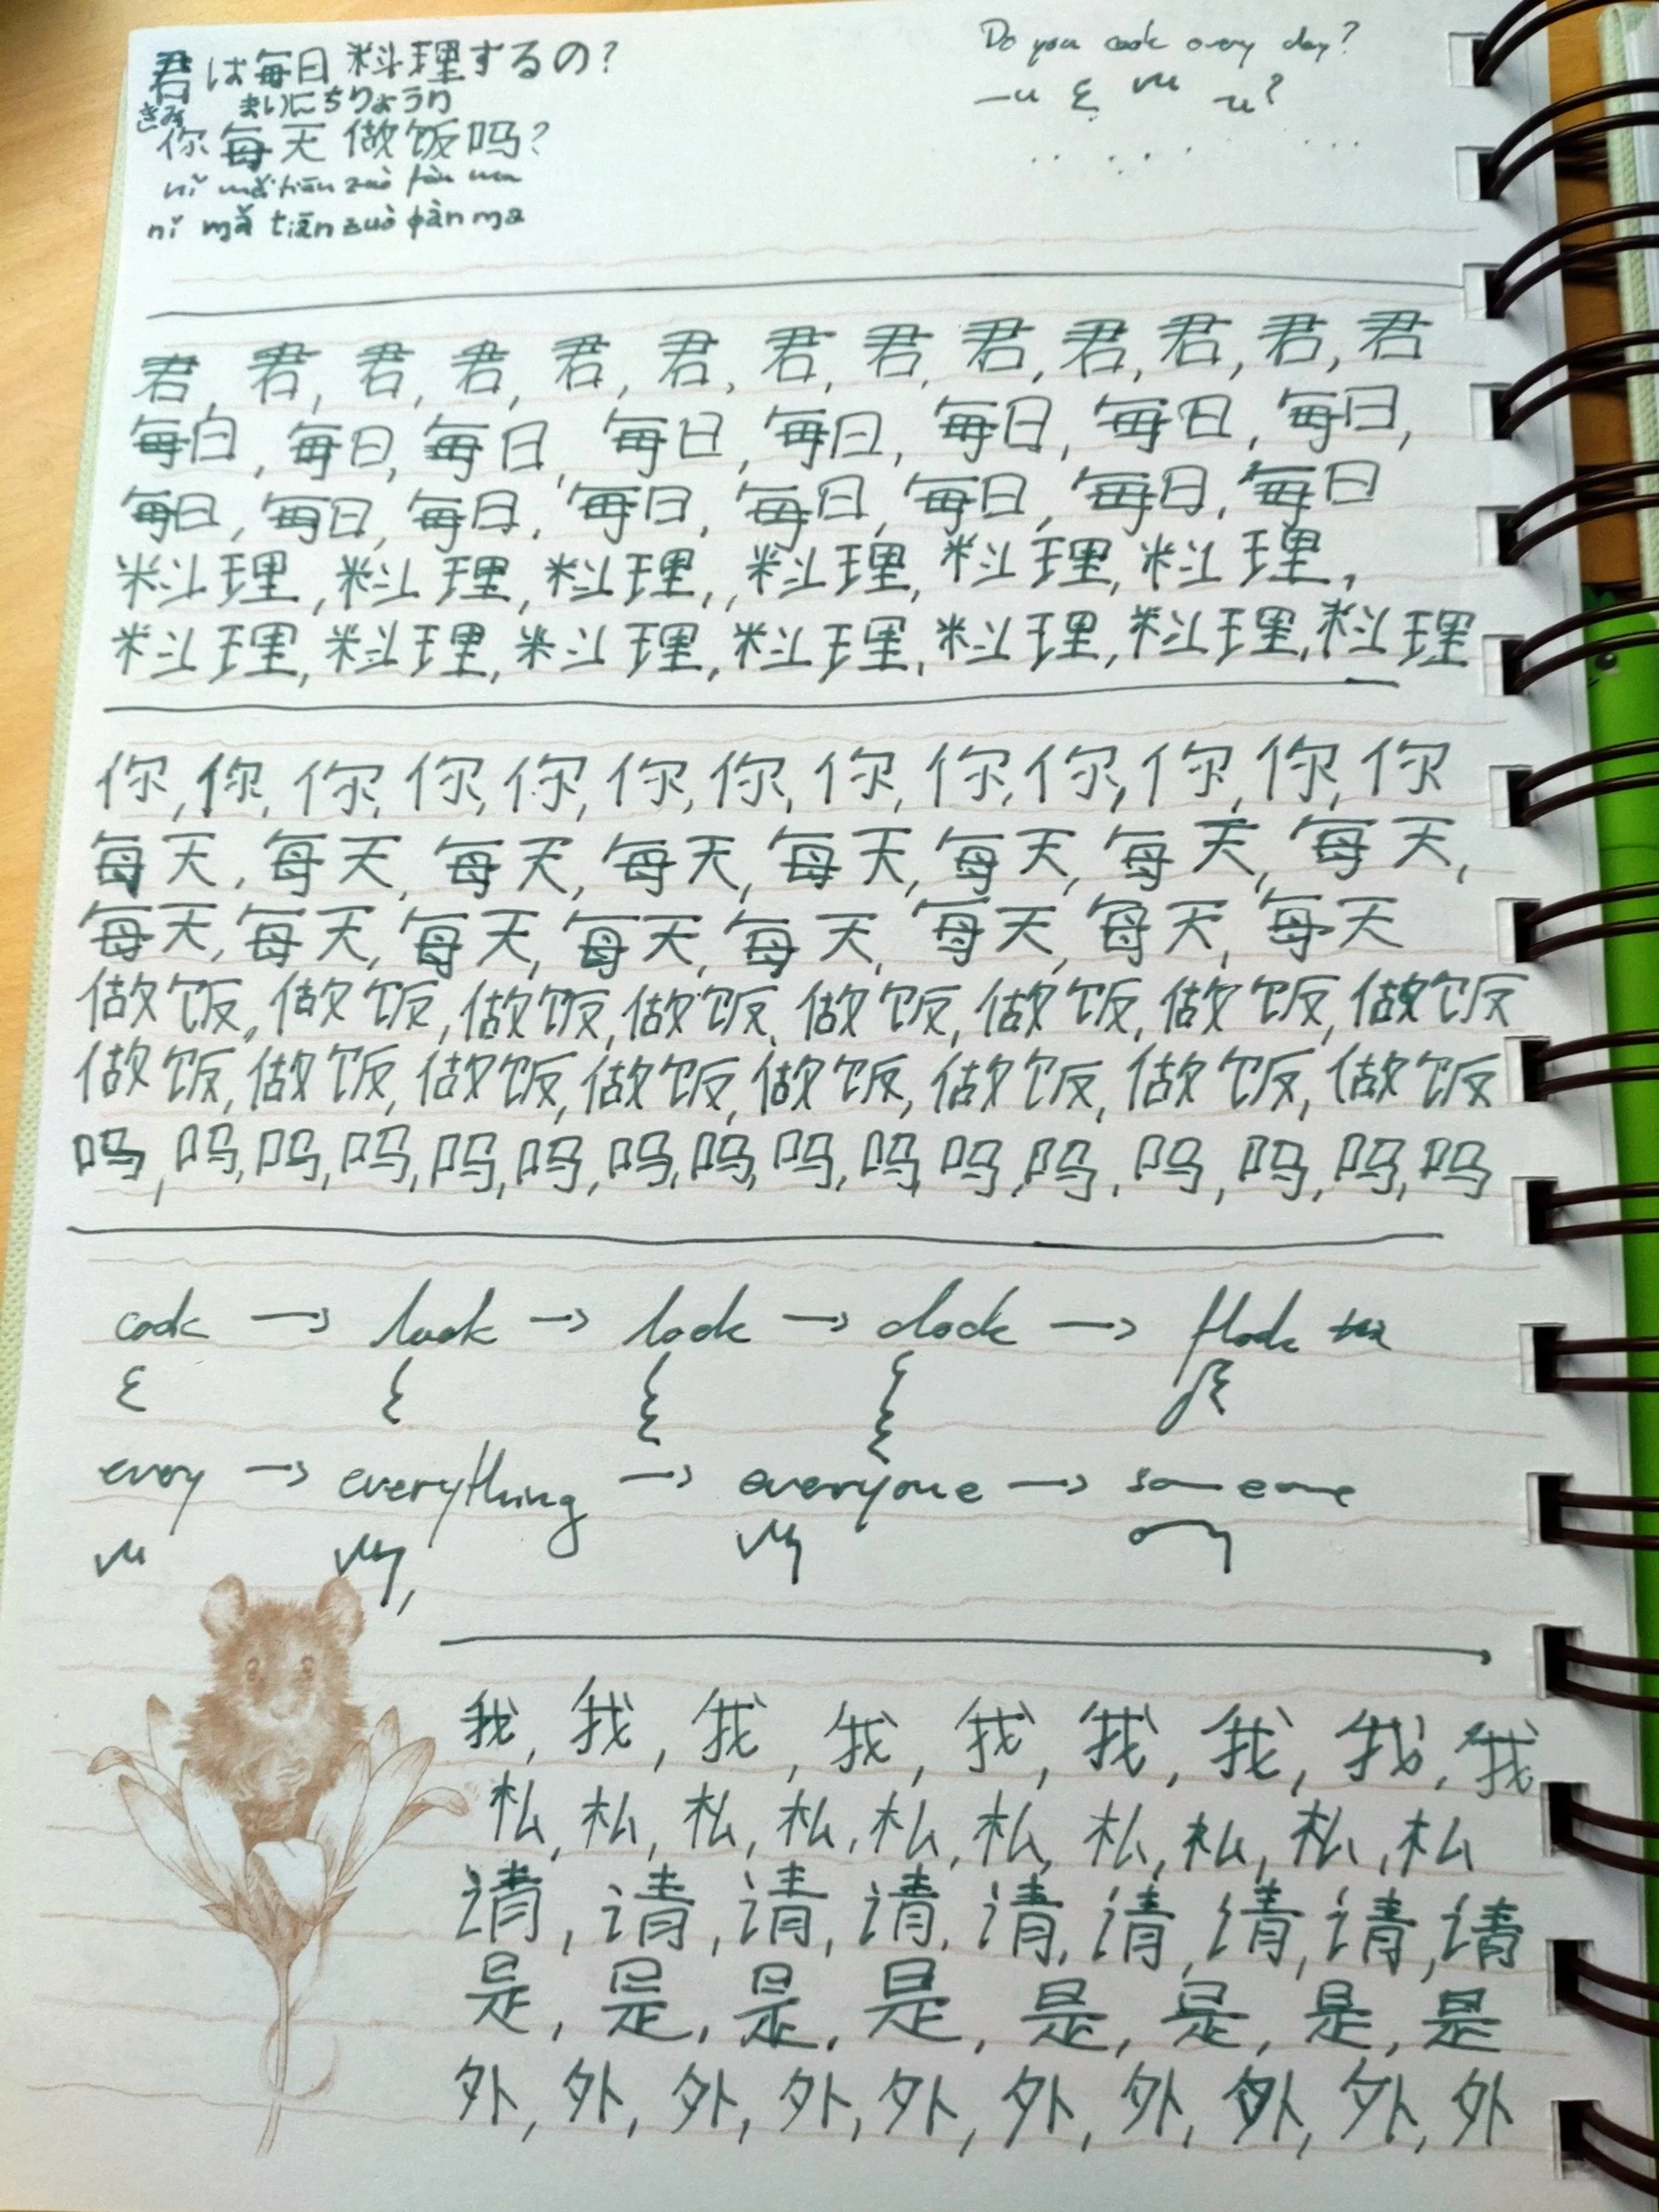 君は毎日料理するの?
きみ まいにちりょうり
你每天做饭吗?
nǐ mǎi tiān zuò fàn ma
nǐ mǎ tiān zuò fàn ma
Do you cook every day?
君, 君, 君, 君, 君, 君, 君, 君, 君, 君, 君, 君, 君
毎日, 毎日, 毎日, 毎日, 毎日, 毎日, 毎日, 毎日,
毎日, 毎日, 毎日, 毎日, 毎日, 毎日, 毎日, 毎日
料理, 料理, 料理, 料理, 料理, 料理,
料理, 料理, 料理, 料理, 料理, 料理, 料理
你, 你, 你, 你, 你, 你, 你, 你, 你, 你, 你, 你, 你
每天, 每天, 每天, 每天, 每天, 每天, 每天, 每天,
每天, 每天, 每天, 每天, 每天, 每天, 每天, 每天
做饭, 做饭, 做饭, 做饭, 做饭, 做饭, 做饭, 做饭
做饭, 做饭, 做饭, 做饭, 做饭, 做饭, 做饭, 做饭
吗, 吗, 吗, 吗, 吗, 吗, 吗, 吗, 吗, 吗, 吗, 吗, 吗, 吗, 吗, 吗
cook → look → lock → clock → flock
every → everything → everyone → someone
我, 我, 我, 我, 我, 我, 我, 我, 我
私, 私, 私, 私, 私, 私, 私, 私, 私, 私
请, 请, 请, 请, 请, 请, 请, 请, 请
是, 是, 是, 是, 是, 是, 是, 是
外, 外, 外, 外, 外, 外, 外, 外, 外, 外